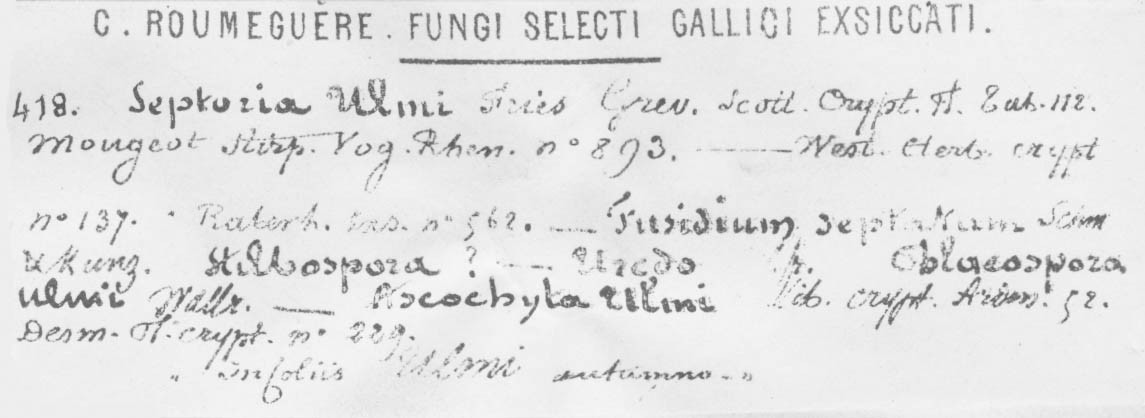 C. ROUMEGUÈRE. FUNGI SELECTI GALLICI EXSICCATI.
418. Septoria Ulmi Fries Grev. Scott. Crypt. Fl. Tab. 112.
Mougeot Stirp. Vog. Rhen. n° 893. — West. Herb. crypt
n° 137. Rabenh. n° 562. — Fusidium septatum Schm
& Kunz. Stilbospora ? — Uredo Fr. Oblaeospora
Ulmi Wallr. — Ascochyta Ulmi Lib. crypt. Arden. 52.
Desm. Fl. crypt. n° 229.
" In foliis Ulmi autumno "